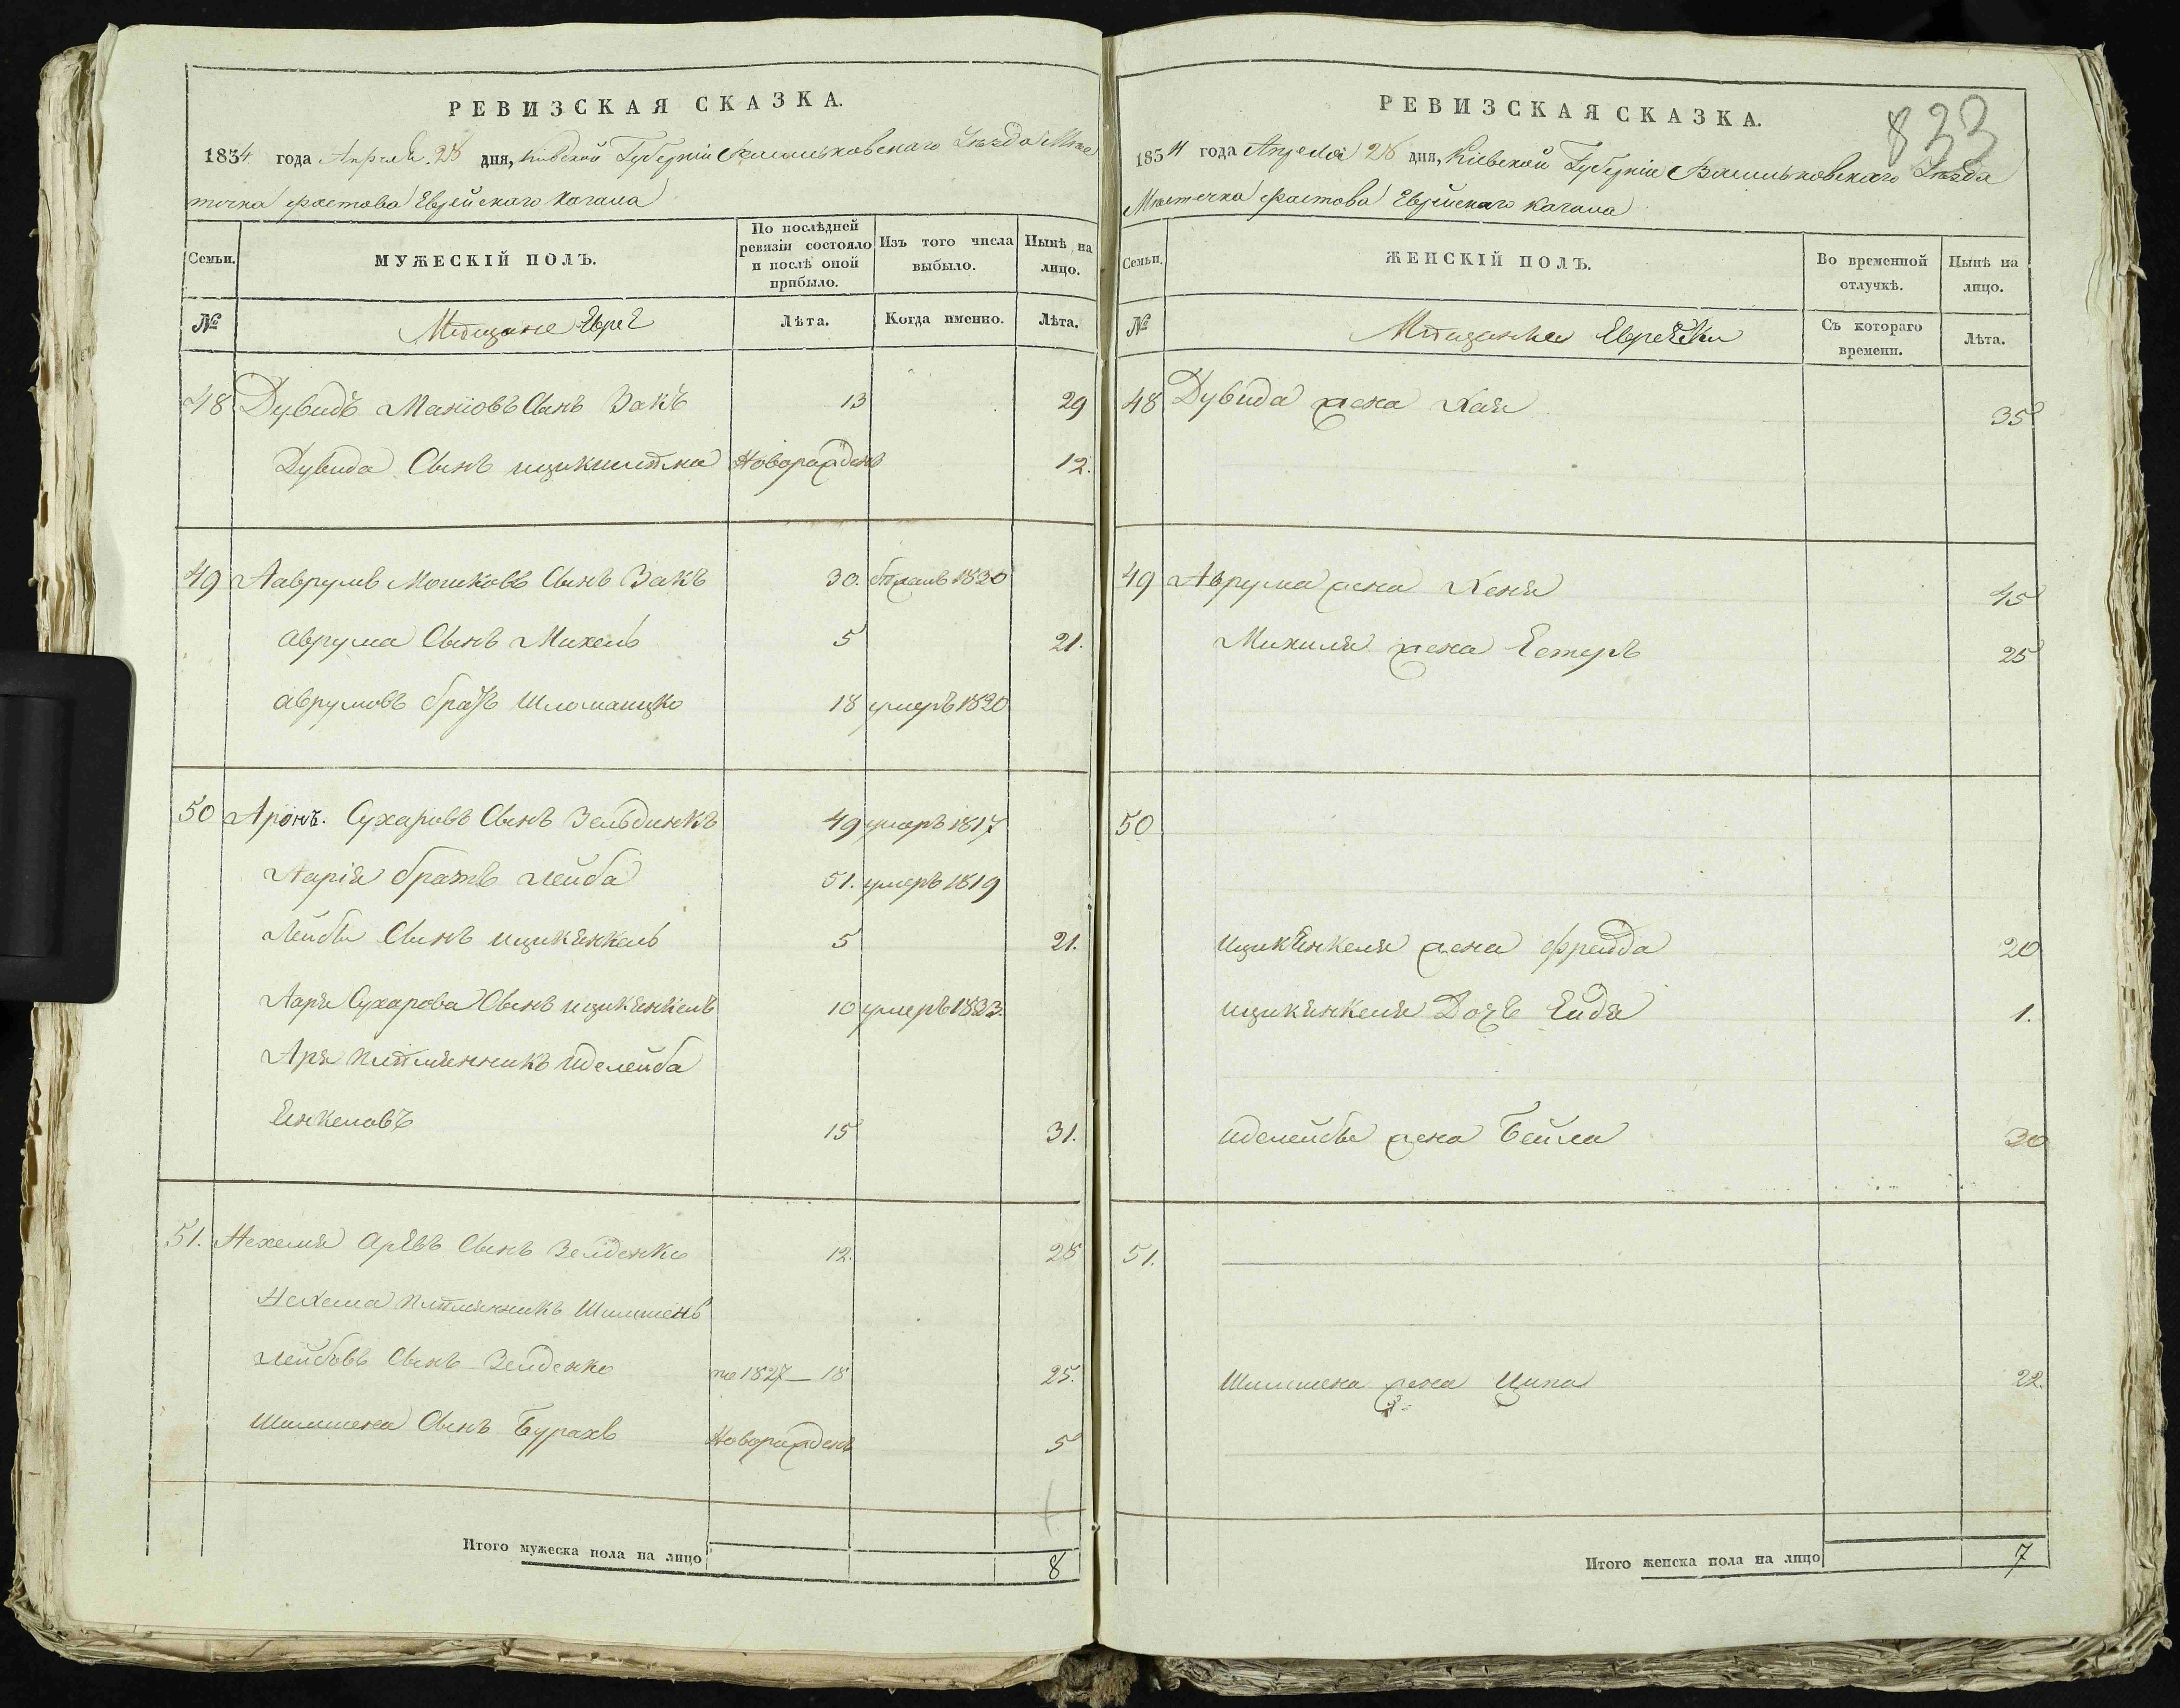 РЕВИЗСКАЯ СКАЗКА.
1834 года Апреля 28 дня, Кіевской Губерніи Васильковскаго Уѣзда Мѣс
течка Фастова Еврейскаго Кагала
Семьи.
МУЖЕСКІЙ ПОЛЪ.
По послѣдней ревизіи состояло и послѣ оной прибыло.
Изъ того числа выбыло.
Нынѣ на лицо.
№
Мѣщане Евреи
Лѣта.
Когда именно.
Лѣта.
48 Дувидъ Маніовъ Сынъ Закъ 13 29
Дувида Сынъ Новорожденъ 12.
49 Аврумъ Мошковъ Сынъ Закъ 30. 1830
аврума Сынъ Михель 5 21.
аврумовъ братъ Шломаицко 18 умеръ 1820
50 Аронъ. Сухаровъ Сынъ Зельдинкъ 49 умеръ 1817
Аарія братъ Лейба 51. умеръ 1819
Лейбы Сынъ ицикянкель 5 21.
Ааря Сухарова Сынъ ицикянкель 10 умеръ 1833.
Аря племянникъ иделейба
Енкеловъ 15 31.
51. Нехемія Арѣвъ Сынъ Зелденко 12. 28
Нехема племянникъ Шимшенъ
Лейбовъ Сынъ Зелденко по 1827 — 18 25.
Шимшена Сынъ Бурахъ Новорожденъ 5
Итого мужеска пола на лицо 8
833
РЕВИЗСКАЯ СКАЗКА.
1834 года Апреля 28 дня, Кіевской Губерніи Васильковскаго Уѣзда
Мѣстечка Фастова Еврейскаго Кагала
Семьи.
ЖЕНСКІЙ ПОЛЪ.
Во временной отлучкѣ.
Нынѣ на лицо.
№
Мѣщанки Еврейки
Съ котораго времени.
Лѣта.
48 Дувида жена Хая 35
49 Аврума жена Хеня 45
Михиля жена Естеръ 25
50
ицикЕнкеля жена Фрейда 20
ицикянкеля Дочь Ейдя 1.
иделейбы жена Бейла 30
51.
Шимшена жена Ципа 22.
Итого женска пола на лицо 7